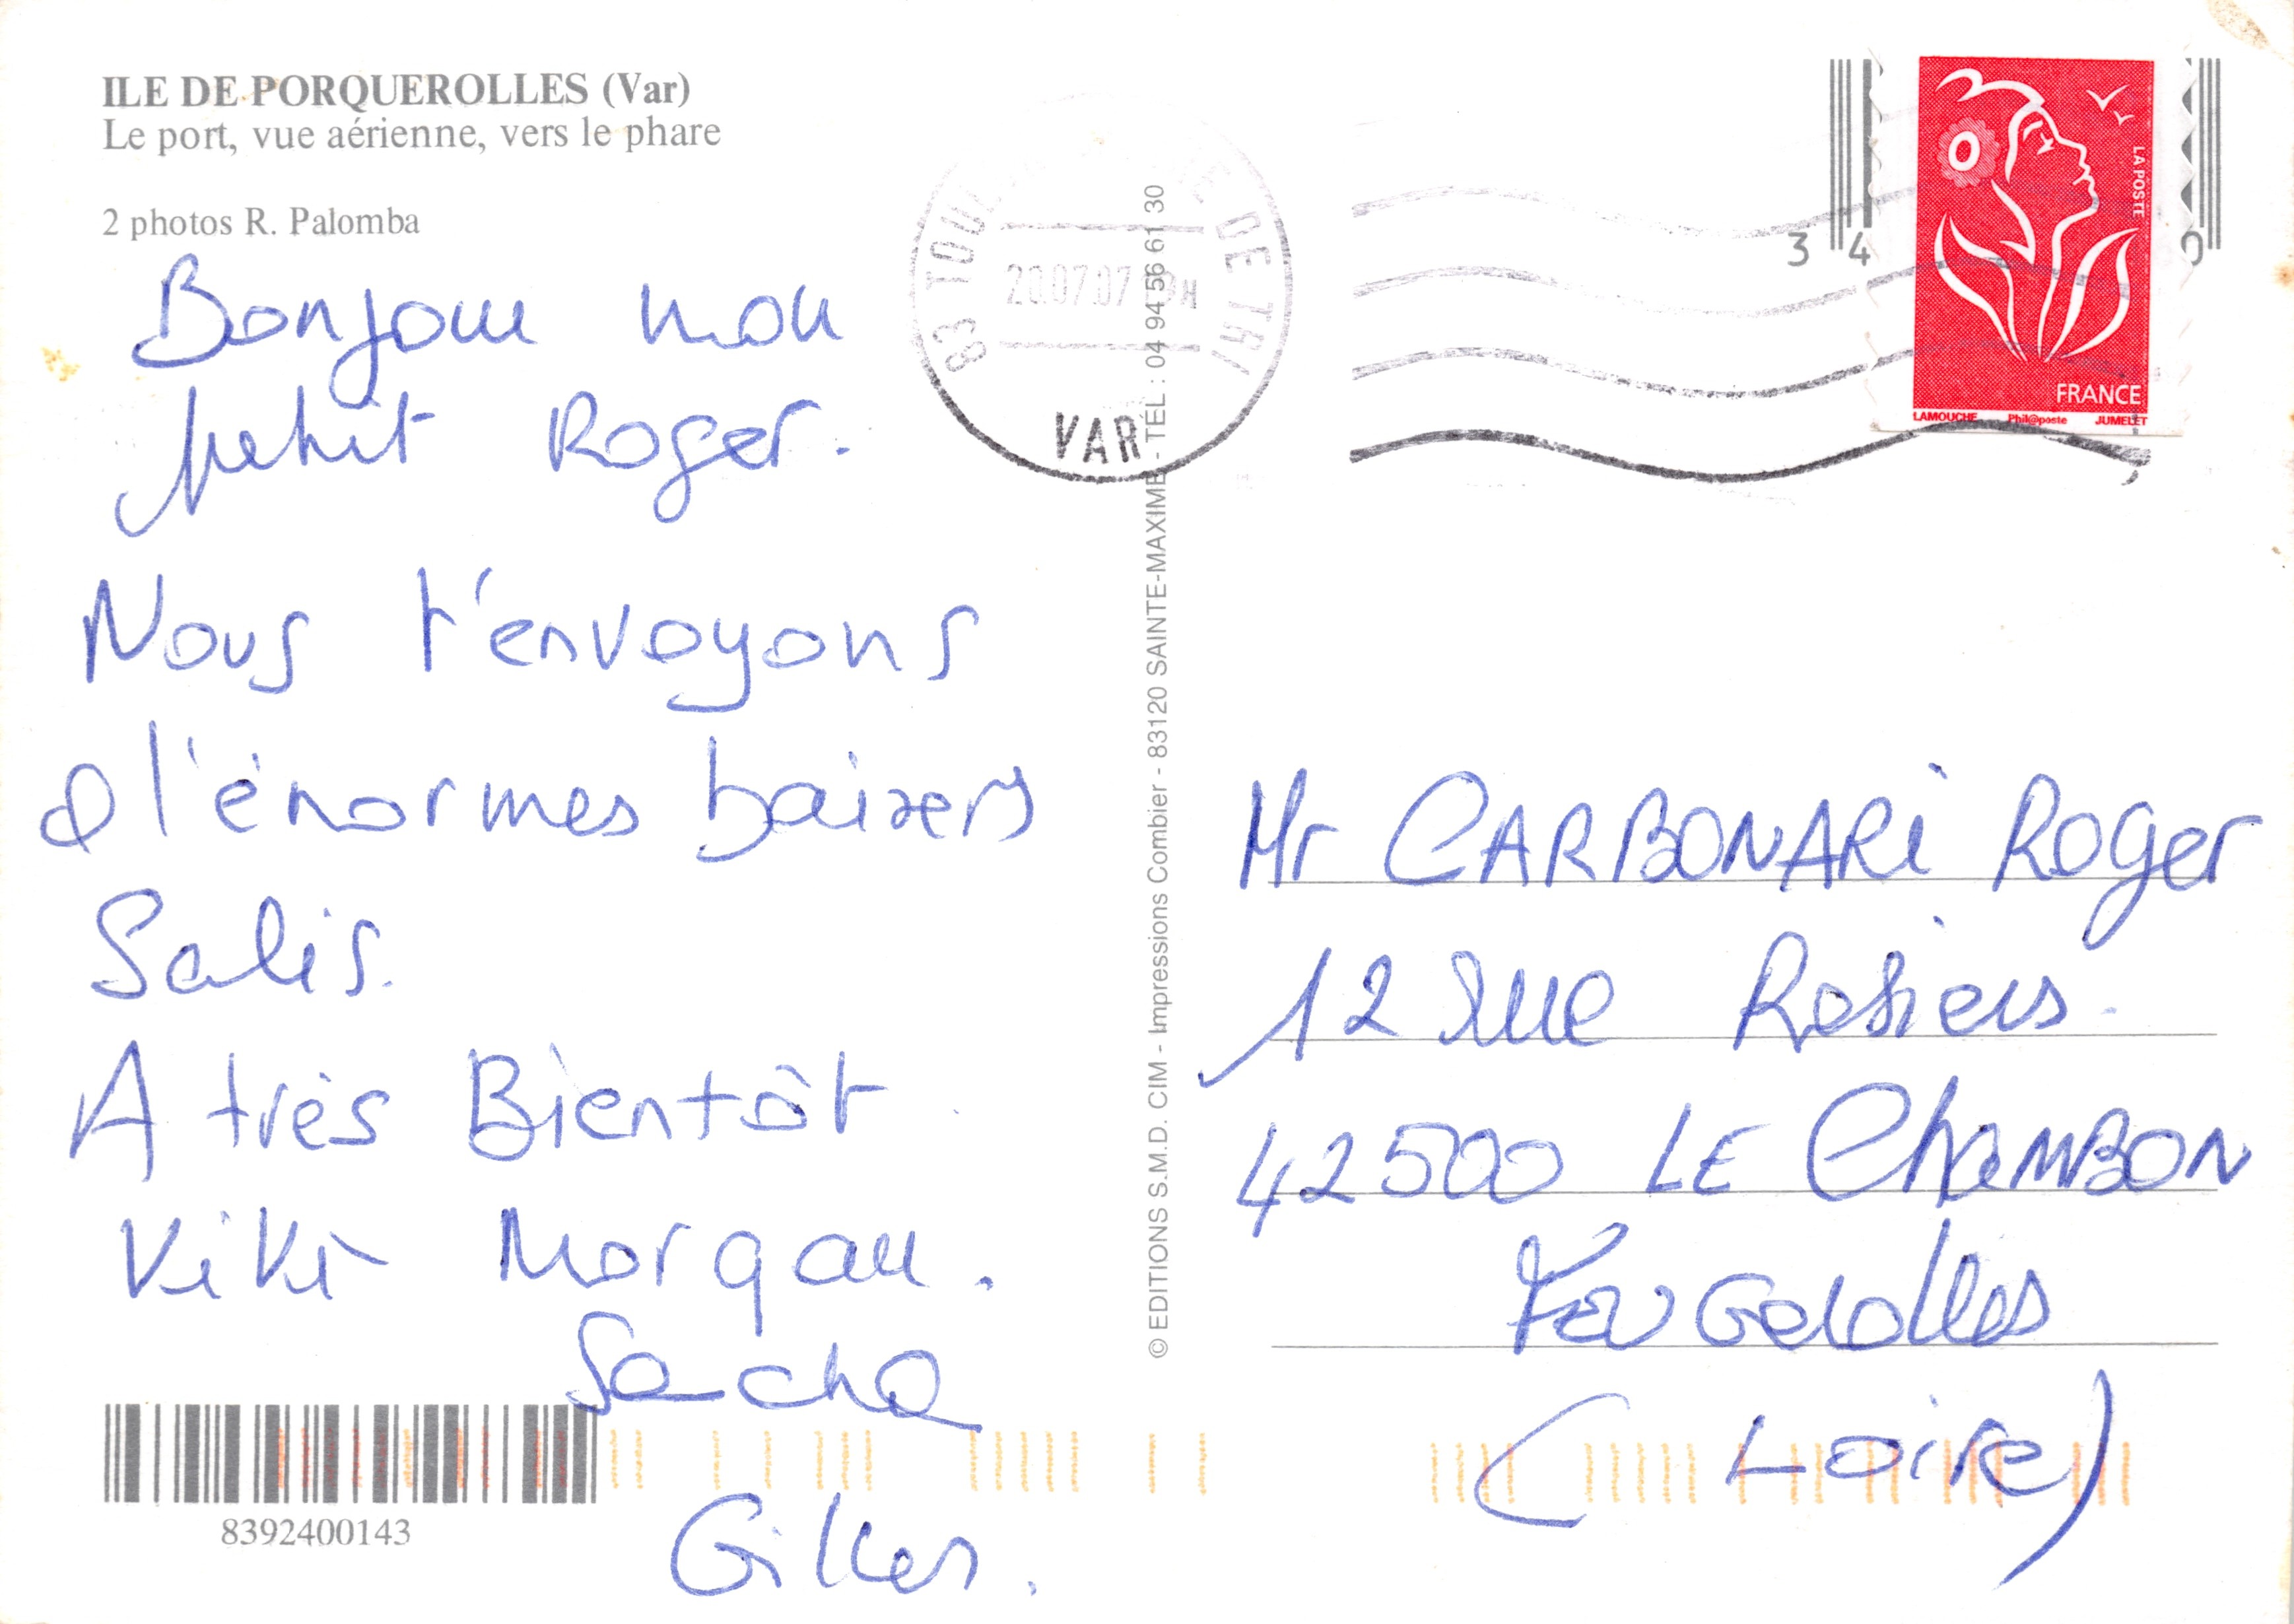 ILE DE PORQUEROLLES (Var)
Le port, vue aérienne, vers le phare
2 photos R. Palomba
Bonjour mon
petit Roger.
Nous t'envoyons
d'énormes baisers
Salis.
A très Bientôt
Viki Morgan.
Sacha
Gilles.
8392400143
© EDITIONS S.M.D. CIM - Impressions Combier - 83120 SAINTE-MAXIME - TÉL : 04 94 56 61 30
83 TOUL DE TRI
20.07.07
VAR
3 4 0
LA POSTE
FRANCE
LAMOUCHE Phil@poste JUMELET
Mr CARBONARi Roger
12 Rue Rosiers.
42500 LE ChAMBON
FeuGerolles
(Loire)